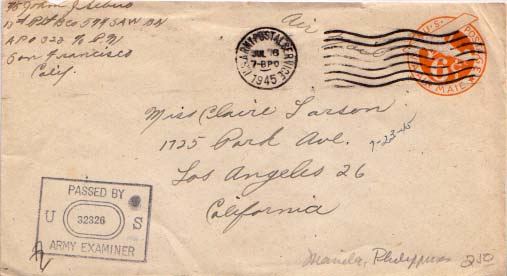 T/5 John J
1st Plt Bco 594 SAW BN
APO 322 % P.M
San Francisco
Calif.
Air Mail
U.S. ARMY POSTAL SERVICE
JUL 16
7-BPO
1945
U.S. POSTAGE
6¢
AIR MAIL
Miss Claire Larson
1725 Park Ave.
Los Angeles 26
California
7-23-45
PASSED BY
U 32326 S
ARMY EXAMINER
Manila, Philippines 250